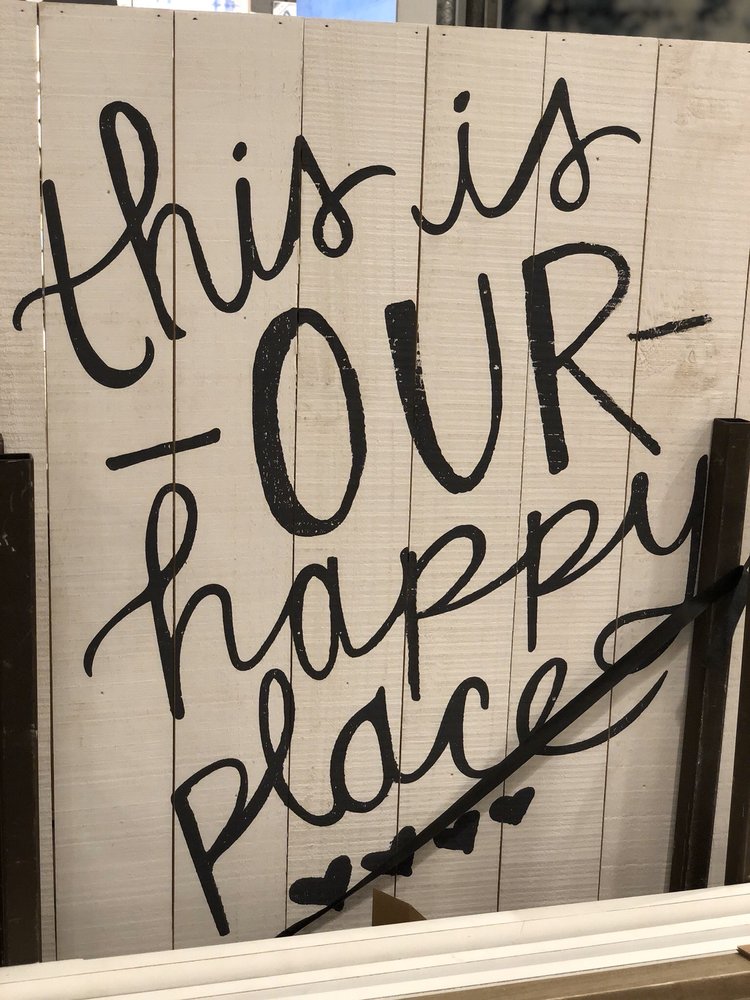 this is
OUR
happy
place